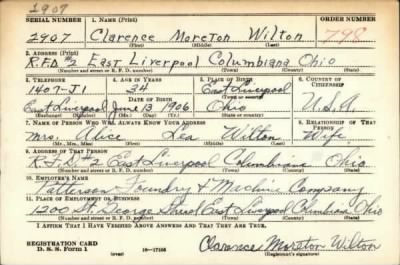 2907
SERIAL NUMBER 1. NAME (Print) ORDER NUMBER
2907 Clarence Moreton Wilton 798
(First) (Middle) (Last)
2. ADDRESS (Print)
R.F.D. #2 East Liverpool Columbiana Ohio
(Number and street or R. F. D. number) (Town) (County) (State)
3. TELEPHONE 4. AGE IN YEARS 5. PLACE OF BIRTH 6. COUNTRY OF CITIZENSHIP
1407-J1 34 East Liverpool
DATE OF BIRTH (Town or county)
East Liverpool June 13 1906 Ohio U.S.A.
(Exchange) (Number) (Mo.) (Day) (Yr.) (State or country)
7. NAME OF PERSON WHO WILL ALWAYS KNOW YOUR ADDRESS 8. RELATIONSHIP OF THAT PERSON
Mrs. Alice Lea Wilton Wife
(Mr., Mrs., Miss) (First) (Middle) (Last)
9. ADDRESS OF THAT PERSON
R.F.D. #2 East Liverpool Columbiana Ohio
(Number and street or R. F. D. number) (Town) (County) (State)
10. EMPLOYER'S NAME
Patterson Foundry & Machine Company
11. PLACE OF EMPLOYMENT OR BUSINESS
1200 St. George Street East Liverpool Columbiana Ohio
(Number and street or R. F. D. number) (Town) (County) (State)
I AFFIRM THAT I HAVE VERIFIED ABOVE ANSWERS AND THAT THEY ARE TRUE.
REGISTRATION CARD
D. S. S. Form 1 (over) 16-17105 Clarence Moreton Wilton
(Registrant's signature)